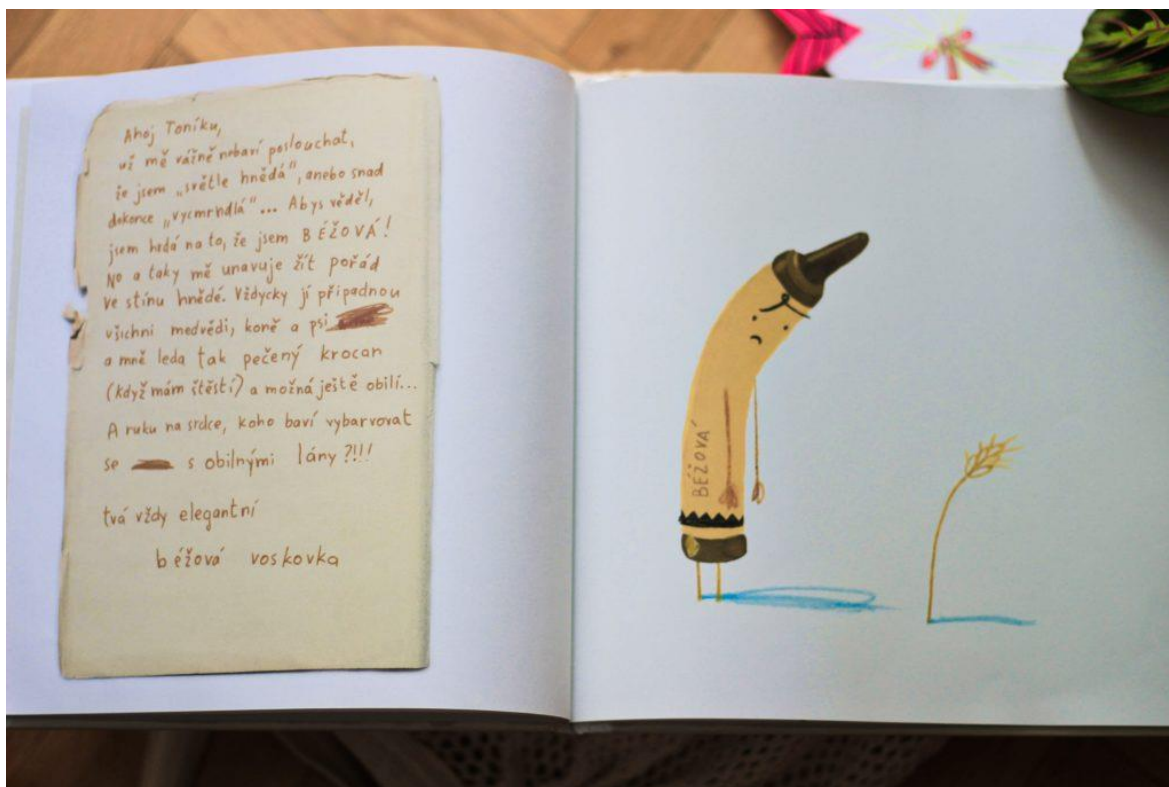 Ahoj Toníku,
už mě vážně nebaví poslouchat,
že jsem „světle hnědá“, anebo snad
dokonce „vycmrndlá“... Abys věděl,
jsem hrdá na to, že jsem BÉŽOVÁ!
No a taky mě unavuje žít pořád
ve stínu hnědé. Vždycky jí připadnou
všichni medvědi, koně a psi
a mně leda tak pečený krocan
(když mám štěstí) a možná ještě obilí...
A ruku na srdce, koho baví vybarvovat
se s obilnými lány?!!!
tvá vždy elegantní
béžová voskovka
BÉŽOVÁ